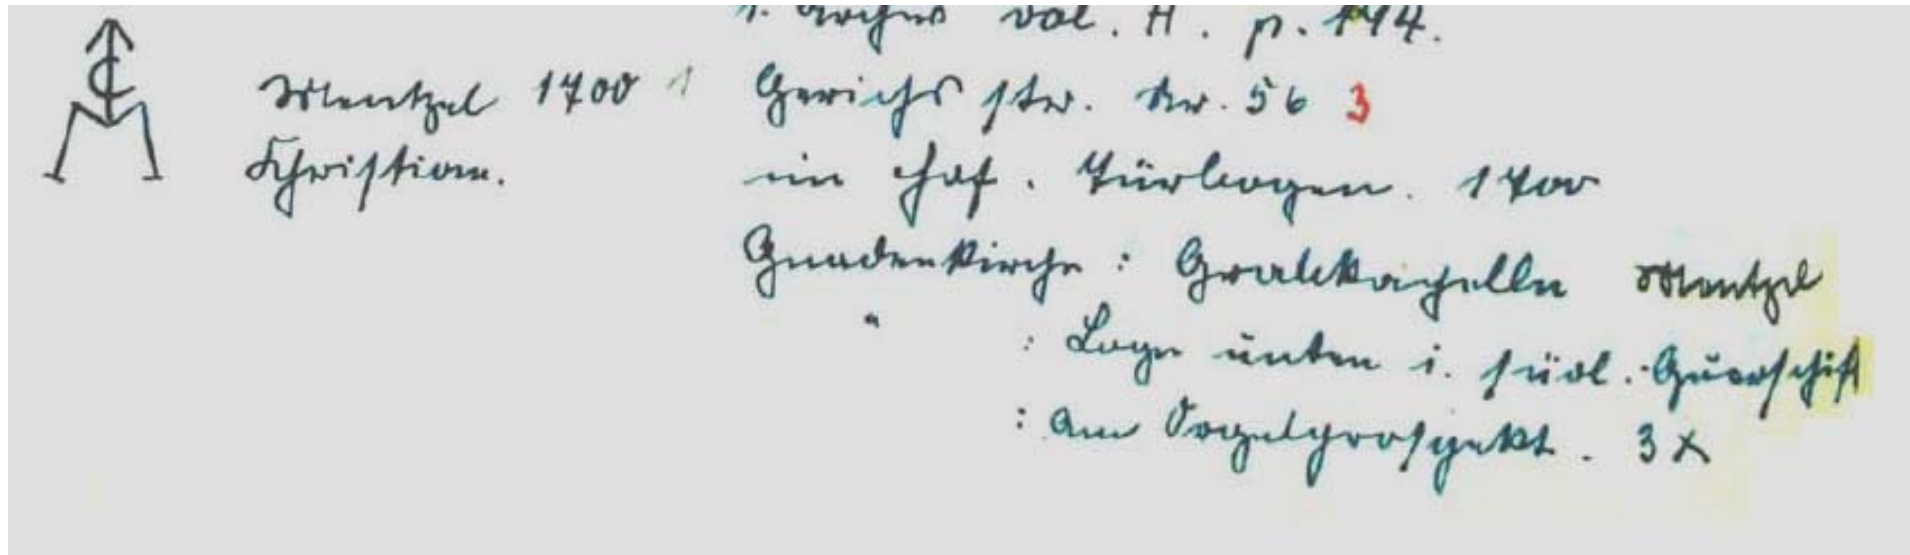 vol. II. p. 144.
Mentzel 1700 1 Gerichs str. Nr. 56 3
Christian. im Hof. Türbogen. 1700
Gnadenkirche: Grabkapelle Mentzel
" : Loge unten i. südl. Querschif
: am Orgelprospekt. 3 x